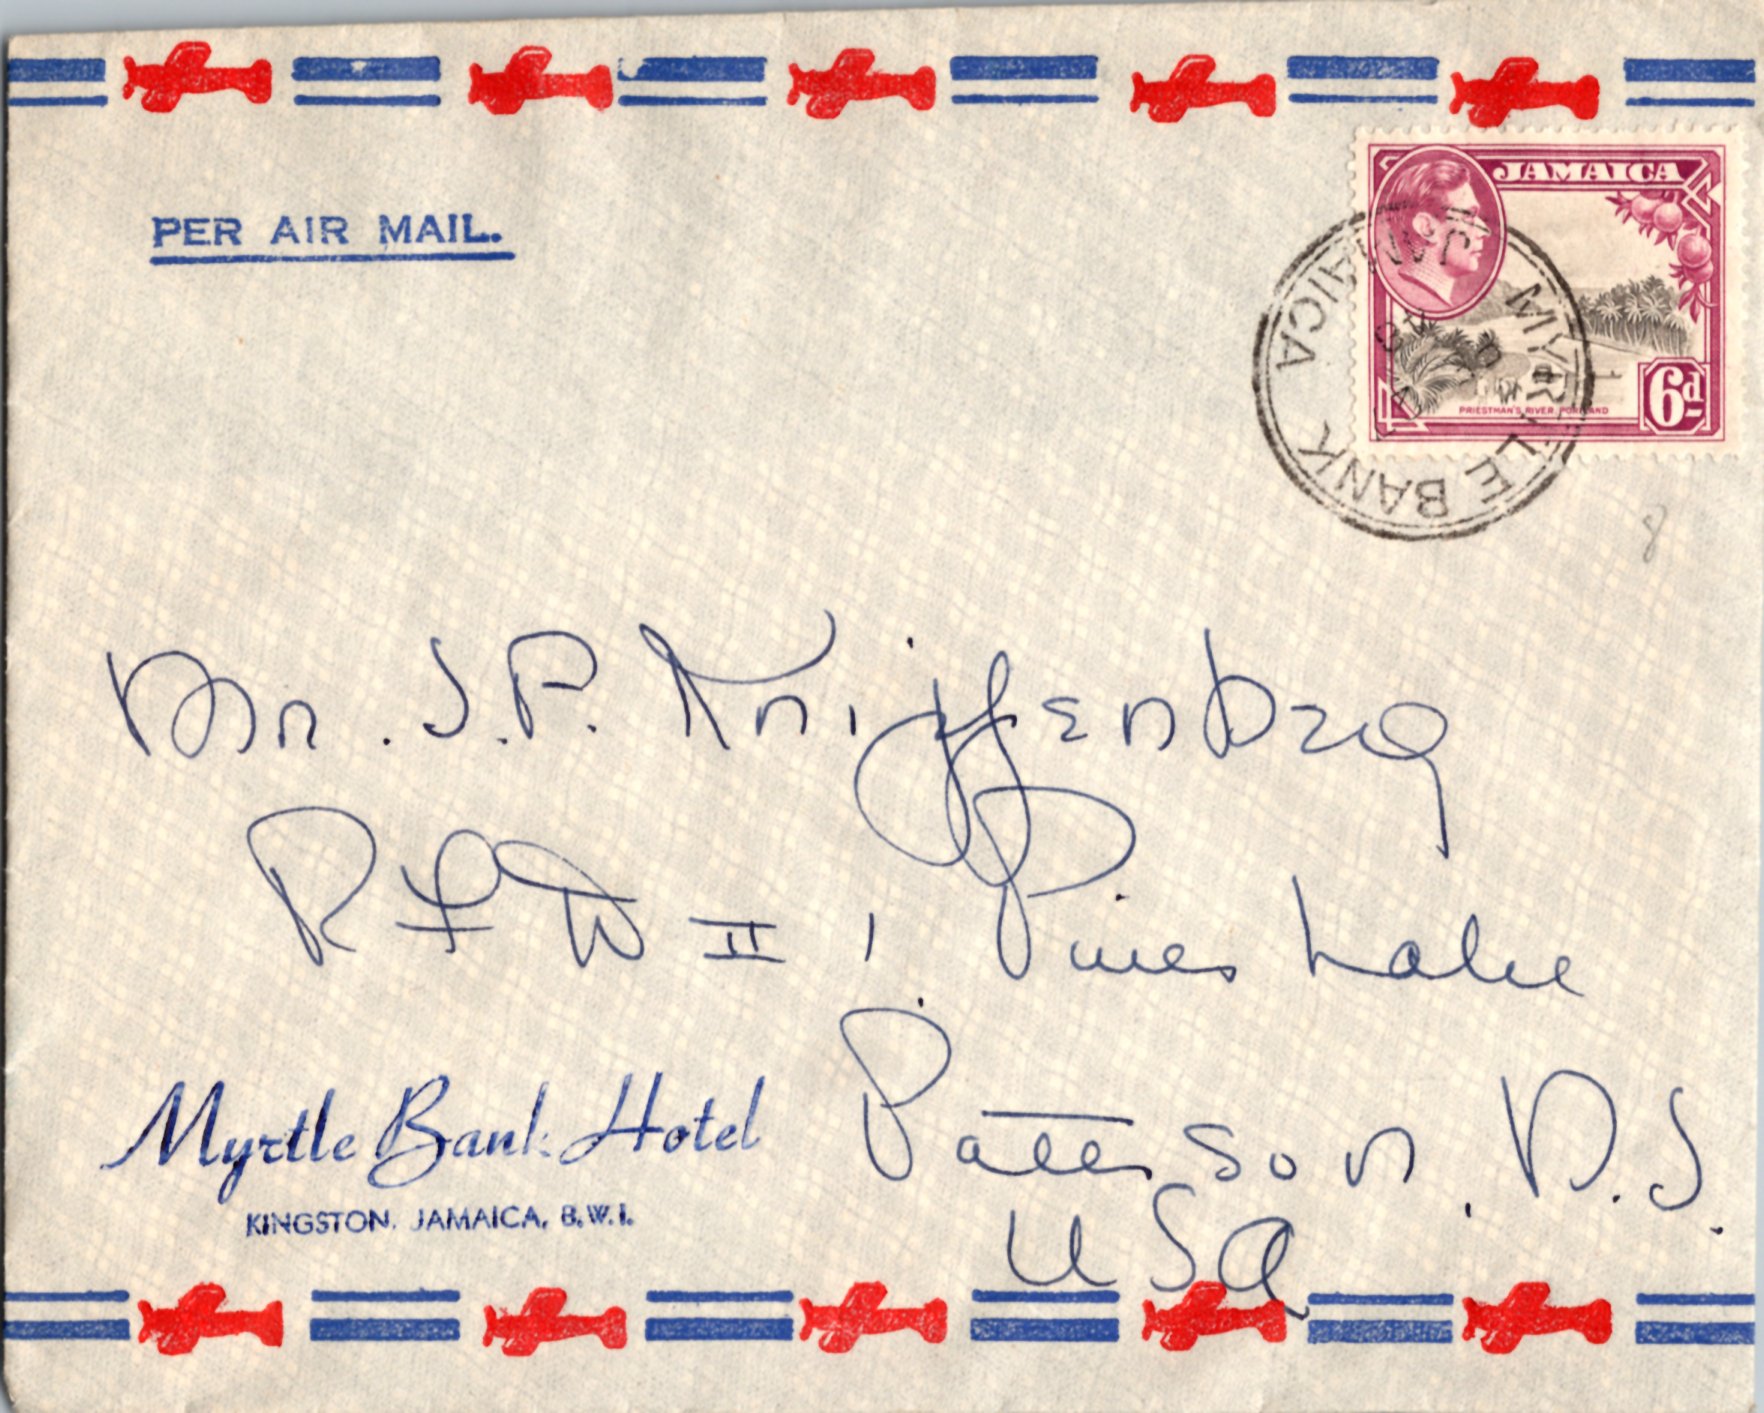 JAMAICA
PER AIR MAIL.
MYRTLE BANK
JAMAICA
PRIESTMAN'S RIVER, PORTLAND
6d
8
Mr. J.P. Knijffenberg
RFD II, Pines Lake
Paterson, N.J.
USA
Myrtle Bank Hotel
KINGSTON, JAMAICA, B.W.I.